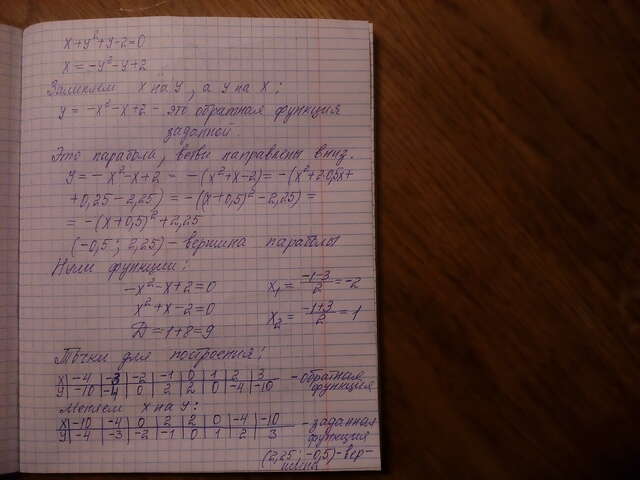 x+y²+y-2=0
x=-y²-y+2
Заменяем x на y, а y на x:
y = -x²-x+2 - это обратная функция
заданной.
Это парабола, ветви направлены вниз.
y=-x²-x+2 = -(x²+x-2)= -(x²+2·0,5x+
+0,25-2,25) = -((x+0,5)²-2,25) =
= -(x+0,5)²+2,25
(-0,5; 2,25) - вершина параболы
Нули функции:
-x²-x+2=0 x₁= -1-3/2 =-2
x²+x-2=0
D=1+8=9 x₂= -1+3/2 =1
Точки для построения:
x -4 -3 -2 -1 0 1 2 3 - обратная
y -10 -4 0 2 2 0 -4 -10 функция
Меняем x на y:
x -10 -4 0 2 2 0 -4 -10 - заданная
y -4 -3 -2 -1 0 1 2 3 функция
(2,25; -0,5) - вер-
шина